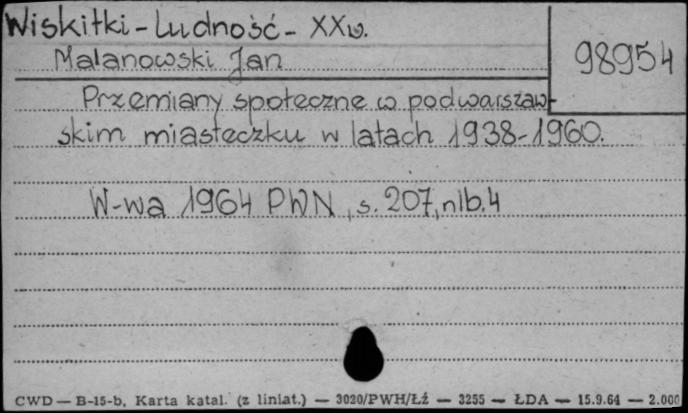 Wiskitki - Ludność - XXw.
98954
Malanowski Jan
Przemiany społeczne w podwarszaw-
skim miasteczku w latach 1938-1960.
W-wa 1964 PWN, s. 207, nlb. 4
CWD — B-15-b. Karta katal. (z liniat.) — 3020/PWH/Łź — 3255 — ŁDA — 15.9.64 — 2.000